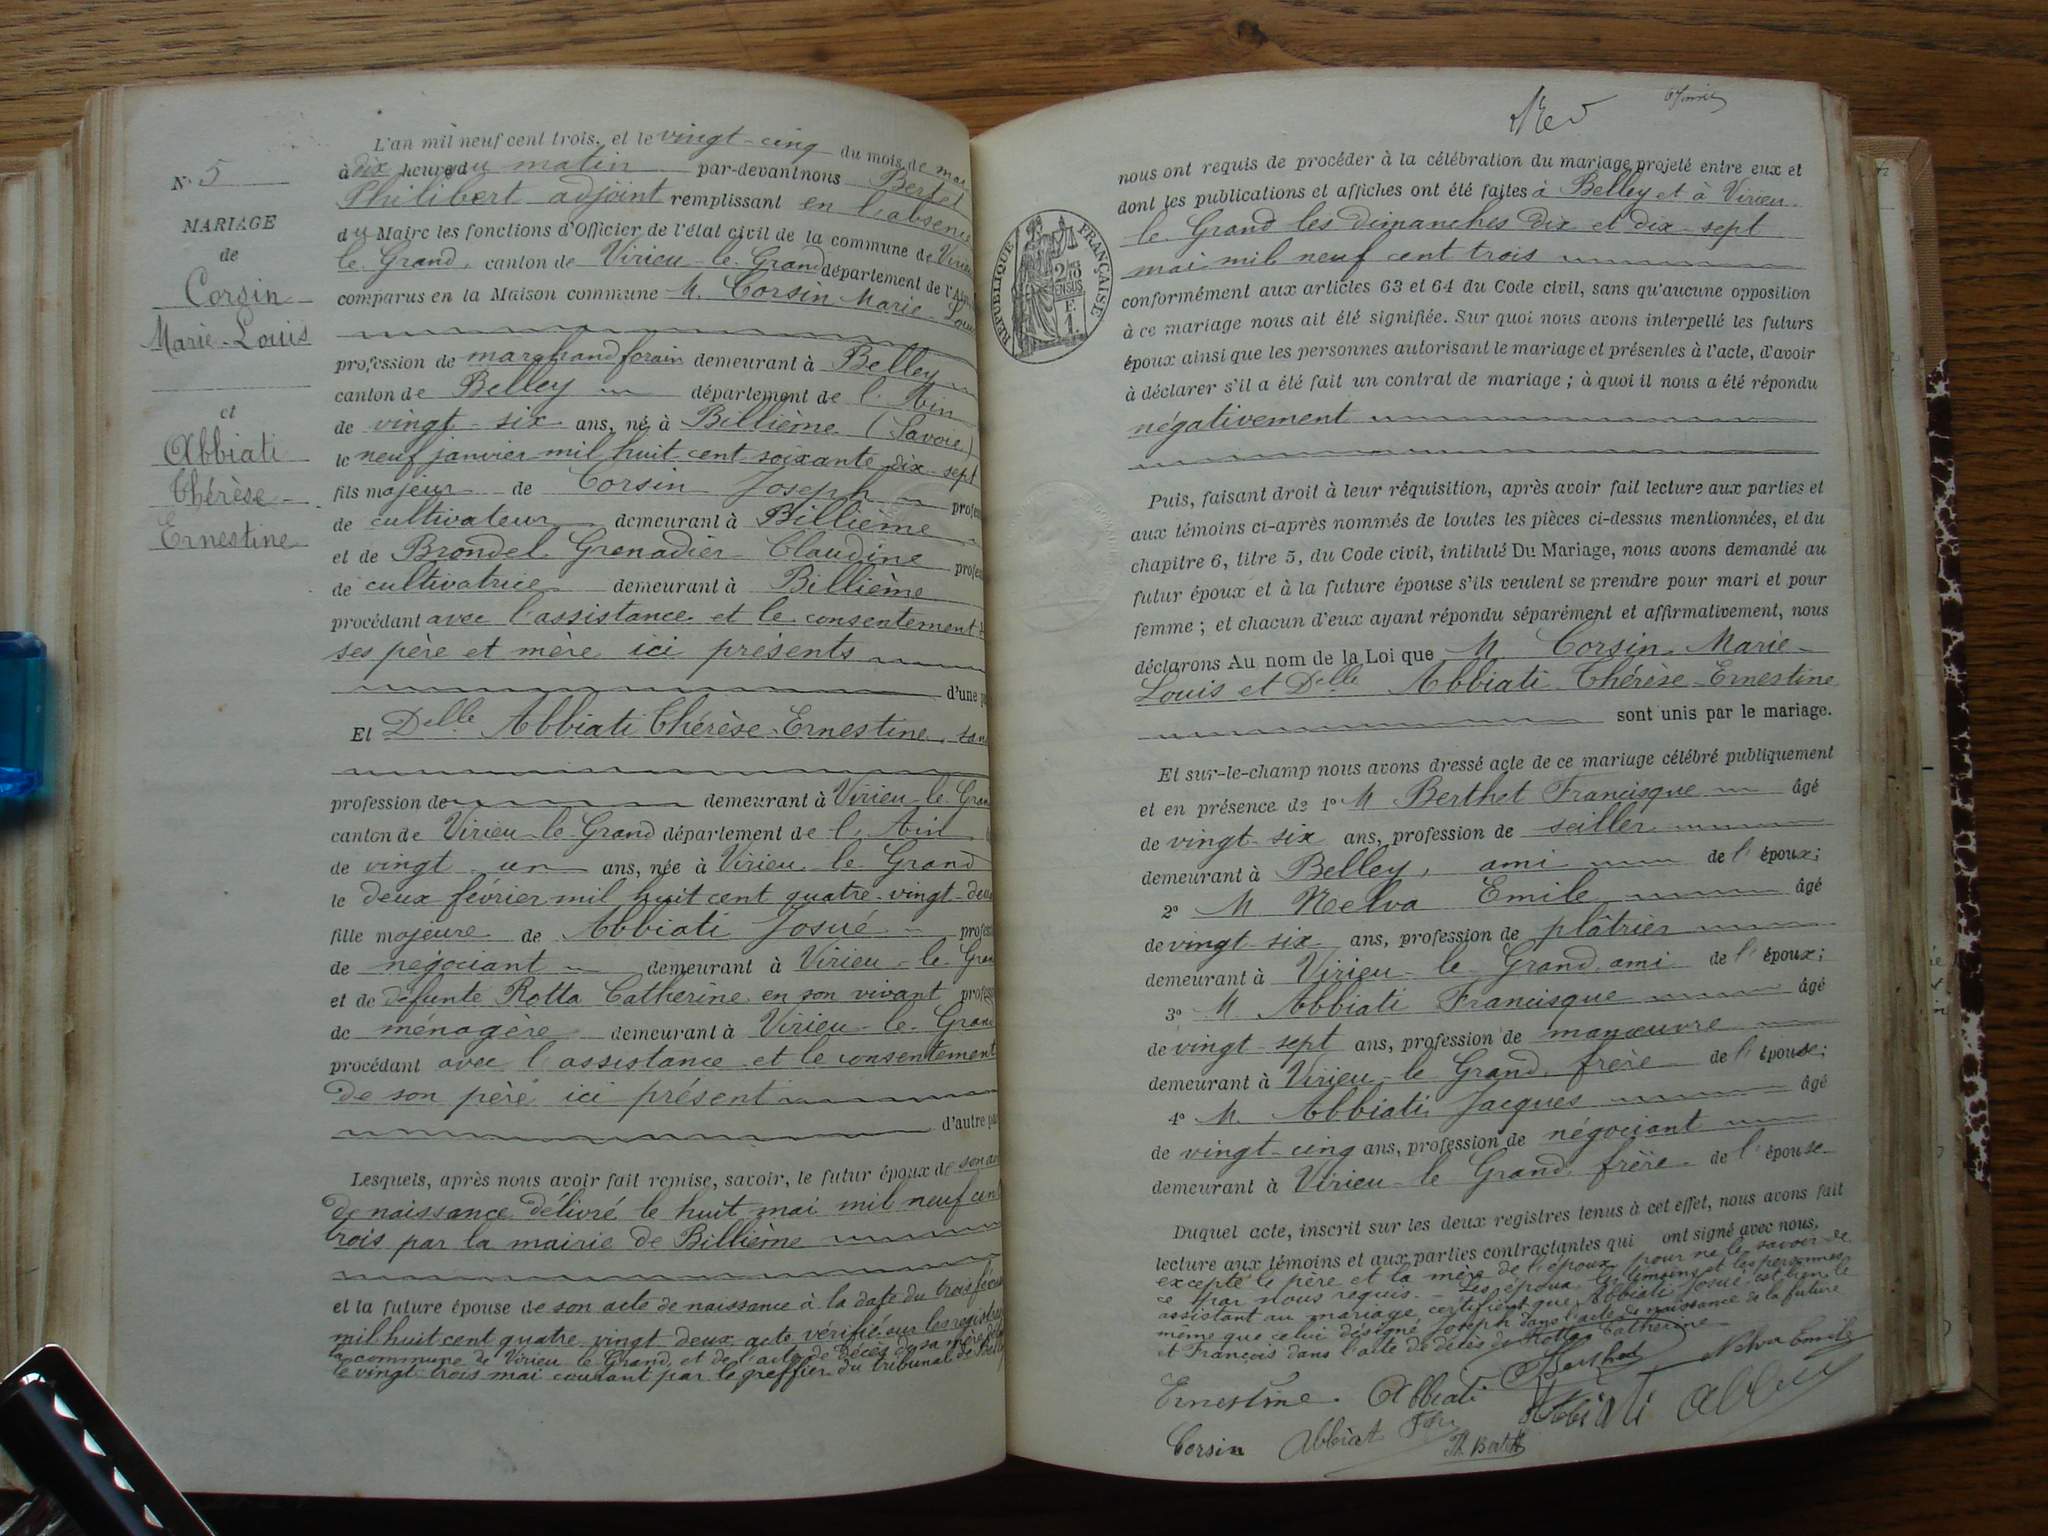 N° 5
MARIAGE
de
Corsin
Marie-Louis
et
Abbiati
Thérèse
Ernestine
L'an mil neuf cent trois, et le vingt-cinq du mois de mai
à dix heures du matin par-devant nous Bertet
Philibert adjoint remplissant en l'absence
du Maire les fonctions d'Officier de l'état civil de la commune de Virieu
le Grand, canton de Virieu-le-Grand département de l'Ain
comparus en la Maison commune M. Corsin Marie-Louis
profession de marchand forain demeurant à Belley
canton de Belley département de l'Ain
de vingt-six ans, né à Billième (Savoie)
le neuf janvier mil huit cent soixante dix-sept
fils majeur de Corsin Joseph profes
de cultivateur demeurant à Billième
et de Brondel Grenadier Claudine profes
de cultivatrice demeurant à Billième
procédant avec l'assistance et le consentement
ses père et mère ici présents
d'une pa
Et Delle Abbiati Thérèse-Ernestine, san
profession de demeurant à Virieu-le-Gran
canton de Virieu-le-Grand département de l'Ain
de vingt un ans, née à Virieu-le-Grand
le deux février mil huit cent quatre-vingt-deux
fille majeure de Abbiati Josué profes
de négociant demeurant à Virieu-le-Gran
et de défunte Rotta Catherine en son vivant profes
de ménagère demeurant à Virieu-le-Grand
procédant avec l'assistance et le consentement
de son père ici présent
d'autre par
Lesquels, après nous avoir fait remise, savoir, le futur époux de son ac
de naissance délivré le huit mai mil neuf cent
trois par la mairie de Billième
et la future épouse de son acte de naissance à la date du trois février
mil huit cent quatre vingt deux acte vérifié sur les registres
commune de Virieu-le-Grand, et de l'acte de décès de sa mère
le vingt-trois mai courant par le greffier du tribunal de
nous ont requis de procéder à la célébration du mariage projeté entre eux et
dont les publications et affiches ont été faites à Belley et à Virieu-
le-Grand les dimanches dix et dix-sept
mai mil neuf cent trois
RÉPUBLIQUE FRANÇAISE
conformément aux articles 63 et 64 du Code civil, sans qu'aucune opposition
à ce mariage nous ait été signifiée. Sur quoi nous avons interpellé les futurs
époux ainsi que les personnes autorisant le mariage et présentes à l'acte, d'avoir
à déclarer s'il a été fait un contrat de mariage ; à quoi il nous a été répondu
négativement
Puis, faisant droit à leur réquisition, après avoir fait lecture aux parties et
aux témoins ci-après nommés de toutes les pièces ci-dessus mentionnées, et du
chapitre 6, titre 5, du Code civil, intitulé Du Mariage, nous avons demandé au
futur époux et à la future épouse s'ils veulent se prendre pour mari et pour
femme ; et chacun d'eux ayant répondu séparément et affirmativement, nous
déclarons Au nom de la Loi que M. Corsin Marie-
Louis et Delle Abbiati Thérèse-Ernestine
sont unis par le mariage.
Et sur-le-champ nous avons dressé acte de ce mariage célébré publiquement
et en présence de 1° M Berthet Francisque âgé
de vingt-six ans, profession de seiller
demeurant à Belley, ami de l'époux;
2° M Nelva Emile âgé
de vingt-six ans, profession de plâtrier
demeurant à Virieu-le-Grand ami de l'époux;
3° M. Abbiati Francisque âgé
de vingt-sept ans, profession de manœuvre
demeurant à Virieu-le-Grand, frère de l'épouse;
4° M. Abbiati Jacques âgé
de vingt-cinq ans, profession de négociant
demeurant à Virieu-le-Grand, frère de l'épouse
Duquel acte, inscrit sur les deux registres tenus à cet effet, nous avons fait
lecture aux témoins et aux parties contractantes qui ont signé avec nous,
excepté le père et la mère de l'époux pour ne le savoir de
ce par nous requis. - Les époux, les témoins et les personnes
assistant au mariage certifient que Abbiati Josué est bien le
même que celui désigné Joseph dans l'acte de naissance de la future
et François dans l'acte de décès de Rotta Catherine
Berthet Nelva Emile
Ernestine Abbiati
Corsin Abbiat Ph Bertet